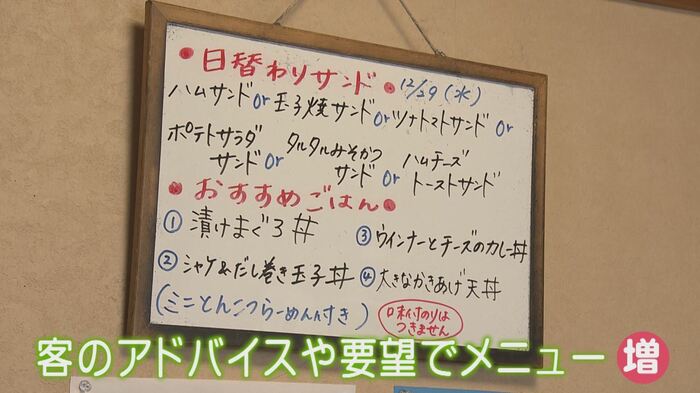 日替わりサンド 12/29(水)
ハムサンド or 玉子焼サンド or ツナトマトサンド or
ポテトサラダサンド or タルタルみそかつサンド or ハムチーズトーストサンド
おすすめごはん
① 漬けまぐろ丼
③ ウインナーとチーズのカレー丼
② シャケ&だし巻き玉子丼
④ 大きなかきあげ天丼
(ミニとんこつらーめん付き)
味付のりは
つきません
客のアドバイスや要望でメニュー増